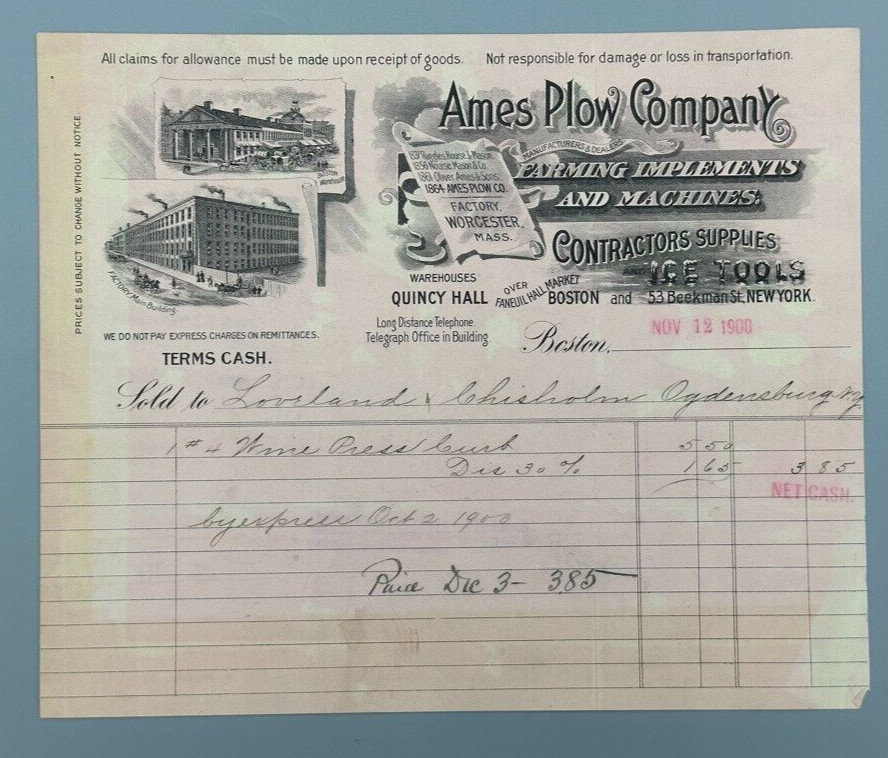 All claims for allowance must be made upon receipt of goods. Not responsible for damage or loss in transportation.
PRICES SUBJECT TO CHANGE WITHOUT NOTICE.
BOSTON Warehouse
FACTORY Main Building.
AMES PLOW COMPANY
MANUFACTURERS & DEALERS
FARMING IMPLEMENTS
AND MACHINES.
Ruggles, Nourse & Mason.
1856 Nourse Mason & Co.
1861 Oliver Ames & Sons.
1864 AMES PLOW CO.
FACTORY,
WORCESTER,
MASS.
CONTRACTORS SUPPLIES
AND ICE TOOLS
WAREHOUSES
QUINCY HALL OVER FANEUIL HALL MARKET BOSTON and 53 Beekman St. NEW YORK.
WE DO NOT PAY EXPRESS CHARGES ON REMITTANCES.
TERMS CASH.
Long Distance Telephone.
Telegraph Office in Building.
Boston, NOV 12 1900
Sold to Loveland & Chisholm Ogdensburg N.Y.
1 #4 Wine Press Curb 5 50
Dis 30 % 1 65 3 85
NET CASH.
by express Oct 2 1900
Paid Dec 3 - 385